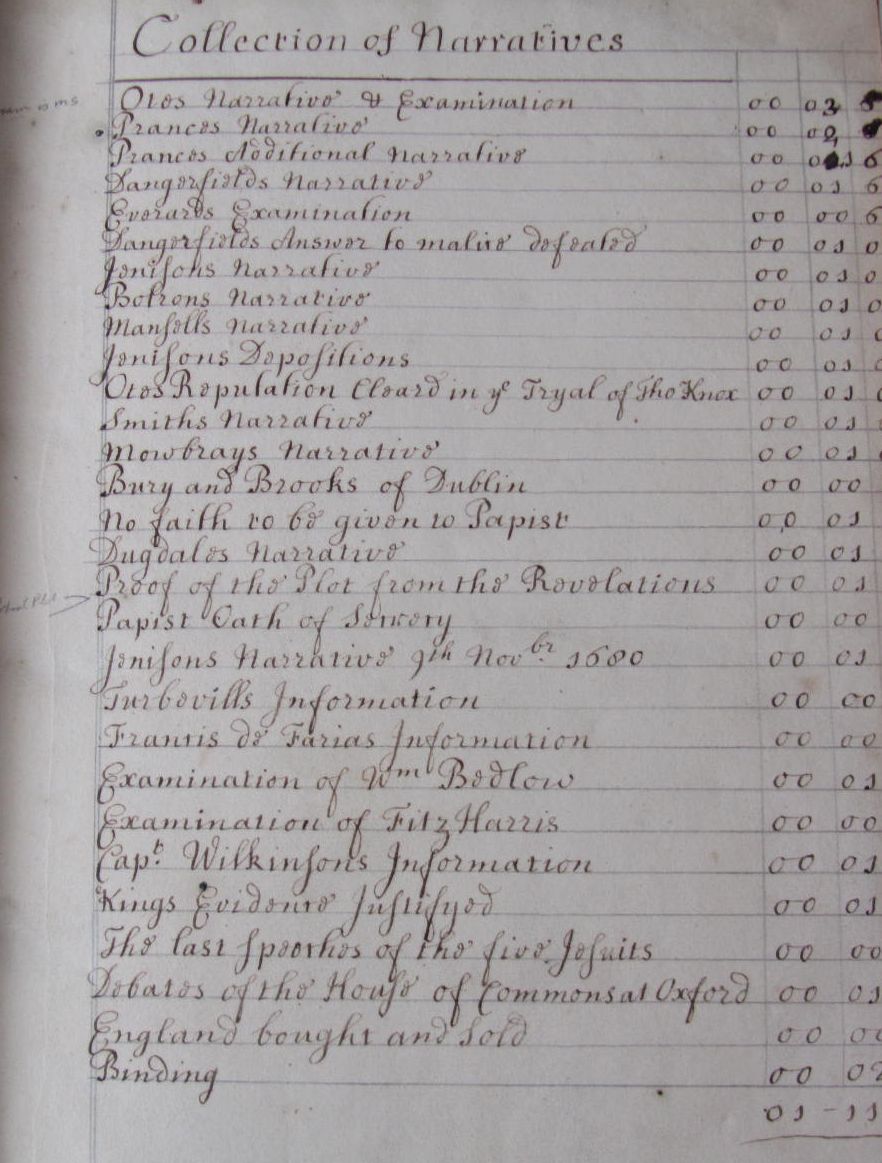 Collection of Narratives
Otes Narrative & Examination 00 03
Prances Narrative 00 02
Prances Additional Narrative 00 01 6
Dangerfields Narrative 00 01 6
Everards Examination 00 00 6
Dangerfields Answer to malice defeated 00 01 0
Jenisons Narrative 00 01 0
Bolrons Narrative 00 01 0
Mansells Narrative 00 01
Jenisons Depositions 00 01
Otes Reputation Cleard in ye Tryal of Tho Knox 00 01
Smiths Narrative 00 01
Mowbrays Narrative 00 01
Bury and Brooks of Dublin 00 00
No faith to be given to Papist 00 01
Dugdales Narrative 00 01
Proof of the Plot from the Revelations 00 01
Papist Oath of Secrecy 00 00
Jenisons Narrative 9th Novbr 1680 00 01
Turbevills Information 00 00
Francis de Farias Information 00 00
Examination of Wm Bedlow 00 01
Examination of FitzHarris 00 00
Capt. Wilkinsons Information 00 01
Kings Evidence Justifyed 00 01
The last speeches of the five Jesuits 00 00
Debates of the House of Commons at Oxford 00 01
England bought and sold 00
Binding 00 02
01-11